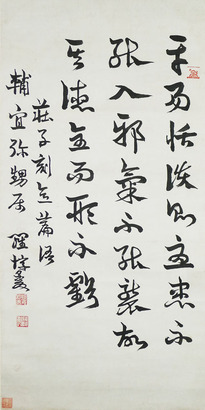 平易恬淡則憂患不
能入邪氣不能襲故
其德全而不虧
莊子刻意篇語
輔宜弥甥屬 羅惇㬊